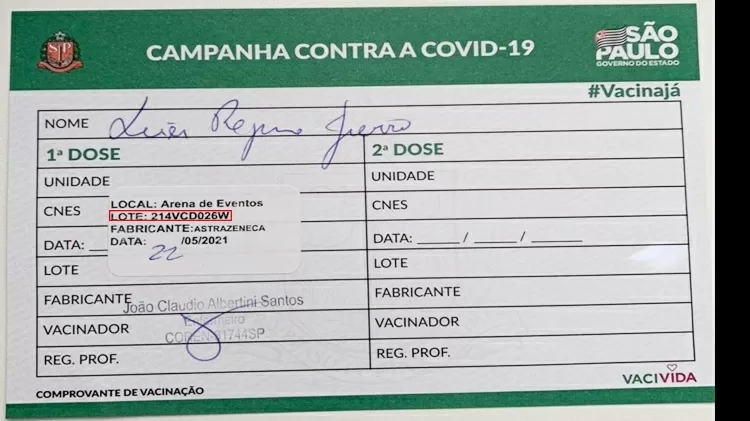 CAMPANHA CONTRA A COVID-19
SÃO PAULO
GOVERNO DO ESTADO
#Vacinajá
NOME
1ª DOSE
2ª DOSE
UNIDADE
UNIDADE
CNES
LOCAL: Arena de Eventos
LOTE: 214VCD026W
FABRICANTE: ASTRAZENECA
DATA: 22 /05/2021
CNES
DATA: __
DATA: ____ / ____ / ____
LOTE
LOTE
FABRICANTE
FABRICANTE
João Claudio Albertini Santos
Enfermeiro
VACINADOR
VACINADOR
REG. PROF.
REG. PROF.
VACIVIDA
COMPROVANTE DE VACINAÇÃO